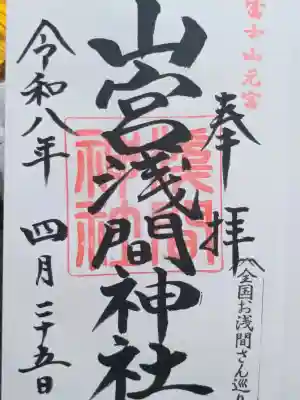 富士山元宮
奉拝
全国お浅間さん巡り
山宮浅間神社
浅間神社
令和八年
四月二十五日